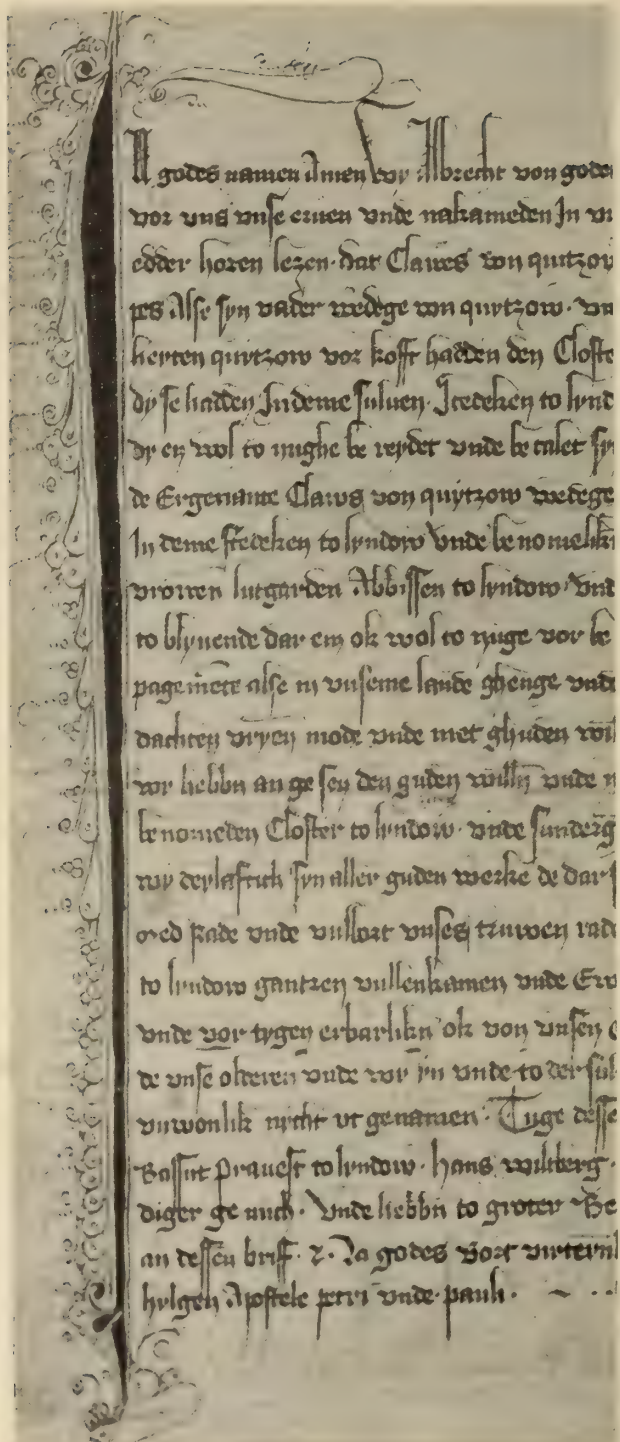 In godes namen Amen Wy Albrecht von gode
vor uns unse eruen unde nakameden In
edder horen lezen. dat Clawes von quitzow
pes Alse syn vader wedege von quytzow. vn
heyten quitzow vor kofft hadden den Closte
dy se hadden Indeme suluen. Stedeken to lynd
dy en wol to nughe be reydet unde be talet sy
de Ergenante Claws von quytzow wedege
In deme stedeken to lyndow Unde be nomelik
vrowen lutgarden Abbissen to lyndow. Und
to blyuende dar em ok wol to nuge vor be
pagemente alse in unseme lande ghenge unde
dachten vryen mode unde met ghuden wil
wy hebbn an ge sen den guden willn unde
benomeden Closter to lyndow. unde sunderg
wy deylaftich syn aller guden werke de dar
med Rade unde vulbort unses truwen rad
to lyndow gantzen vullenkamen unde Ew
unde vor tygen erbarlikn ok von unsen
de unse olderen unde wy yn unde to der sul
vnwonlik nycht ut genamen. Tuge desse
Bassut Prauest to lyndow. hans wiltberg.
diger ge nuch. Unde hebbn to groter Be
an dessen briff. Na godes bort virteyn
hylgen Apostele petri unde pauli.